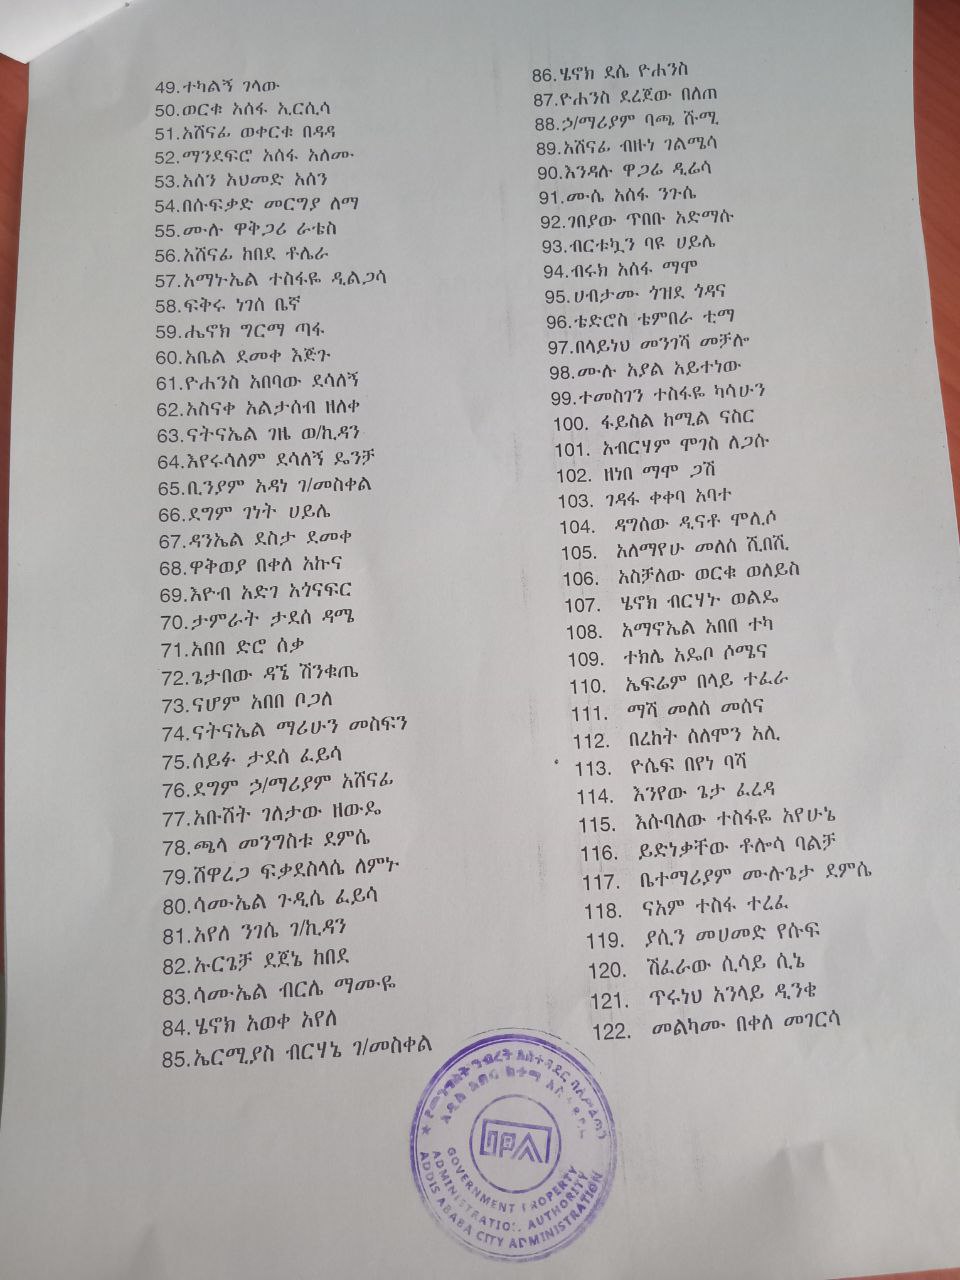 49.ተካልኝ ገላው
50.ወርቁ አሰፋ ኢርሲሳ
51.አሸናፊ ወቀርቱ በዳዳ
52.ማንደፍሮ አሰፋ አለሙ
53.አሰን አህመድ አሰን
54.በሱፍቃድ መርግያ ለማ
55.ሙሉ ዋቅጋሪ ራቴስ
56.አሸናፊ ከበደ ቶሌራ
57.አማኑኤል ተስፋዬ ዲልጋሳ
58.ፍቅሩ ነገሰ ቤኛ
59.ሔኖክ ግርማ ጣፋ
60.አቤል ደመቀ እጅጉ
61.ዮሐንስ አበባው ደሳለኝ
62.አስናቀ አልታሰብ ዘለቀ
63.ናትናኤል ገዜ ወ/ኪዳን
64.እየሩሳለም ደሳለኝ ዴንቻ
65.ቢንያም አዳነ ገ/መስቀል
66.ደግም ገነት ሀይሌ
67.ዳንኤል ደስታ ደመቀ
68.ዋቅወያ በቀለ አኩና
69.እዮብ አድገ አጎናፍር
70.ታምራት ታደሰ ዳሜ
71.አበበ ድሮ ሰቃ
72.ጌታበው ዳኜ ሽንቁጤ
73.ናሆም አበበ ቦጋለ
74.ናትናኤል ማሪሁን መስፍን
75.ሰይፉ ታደሰ ፈይሳ
76.ደግም ኃ/ማሪያም አሸናፊ
77.አቡሸት ገለታው ዘውዴ
78.ጫላ መንግስቱ ደምሴ
79.ሸዋረጋ ፍቃደስላሴ ለምኑ
80.ሳሙኤል ጉዲሴ ፈይሳ
81.አየለ ንገሴ ገ/ኪዳን
82.ኡርጌቻ ደጀኔ ከበደ
83.ሳሙኤል ብርሌ ማሙዬ
84.ሄኖክ አወቀ አየለ
85.ኤርሚያስ ብርሃኔ ገ/መስቀል
86.ሄኖክ ደሴ ዮሐንስ
87.ዮሐንስ ደረጀው በለጠ
88.ኃ/ማሪያም ባጫ ሹሚ
89.አሸናፊ ብዙነ ገልሜሳ
90.እንዳሉ ዋጋሬ ዲሬሳ
91.ሙሴ አሰፋ ንጉሴ
92.ገበያው ጥበቡ አድማሱ
93.ብርቱኳን ባዩ ሀይሌ
94.ብሩክ አሰፋ ማሞ
95.ሀብታሙ ጎዝደ ጎዳና
96.ቴድሮስ ቴምበራ ቲማ
97.በላይነህ መንገሻ መቻሎ
98.ሙሉ አያል አይተነው
99.ተመስገን ተስፋዬ ካሳሁን
100. ፋይስል ከሚል ናስር
101. አብርሃም ሞገስ ለጋሱ
102. ዘነበ ማሞ ጋሽ
103. ገዳፋ ቀቀባ አባተ
104. ዳግሰው ዲናቶ ሞሊሶ
105. አለማየሁ መለስ ሺበሺ
106. አስቻለው ወርቁ ወለይስ
107. ሄኖክ ብርሃኑ ወልዴ
108. አማኖኤል አበበ ተካ
109. ተክሌ አዴቦ ሶሜና
110. ኤፍሬም በላይ ተፈራ
111. ማሻ መለሰ መሰና
112. በረከት ስለሞን አሊ
113. ዮሴፍ በየነ ባሻ
114. እንየው ጌታ ፈረዳ
115. እሱባለው ተስፋዬ አየሁኔ
116. ይድነቃቸው ቶሎሳ ባልቻ
117. ቤተማሪያም ሙሉጌታ ደምሴ
118. ናአም ተስፋ ተረፈ
119. ያሲን መሀመድ የሱፍ
120. ሽፈራው ሲሳይ ሲኔ
121. ጥሩነህ አንላይ ዲንቄ
122. መልካሙ በቀለ መገርሳ
የመንግስት ንብረት አስተዳደር ባለሥልጣን
አዲስ አበባ ከተማ
GOVERNMENT PROPERTY
ADMINISTRATION AUTHORITY
ADDIS ABABA CITY ADMINISTRATION